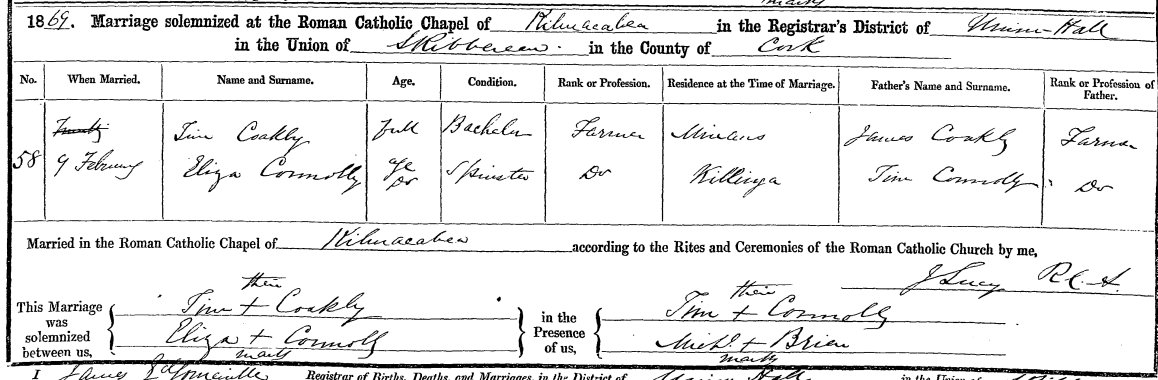 1869. Marriage solemnized at the Roman Catholic Chapel of Kilmacabea in the Registrar's District of Union-Hall
in the Union of Skibbereen. in the County of Cork
No. When Married. Name and Surname. Age. Condition. Rank or Profession. Residence at the Time of Marriage. Father's Name and Surname. Rank or Profession of Father.
Tim Coakly Full Bachelor Farmer Minans James Coakly Farmer
58 9 February Eliza Connolly age Do Spinster Do Killinga Tim Connolly Do
Married in the Roman Catholic Chapel of Kilmacabea according to the Rites and Ceremonies of the Roman Catholic Church by me,
J Lucy
their their
This Marriage was solemnized between us, Tim + Coakly in the Presence of us, Tim + Connolly
Eliza + Connolly Michl + Brien
mark marks
I James Registrar of Births, Deaths, and Marriages, in the District of Union Hall in the Union of